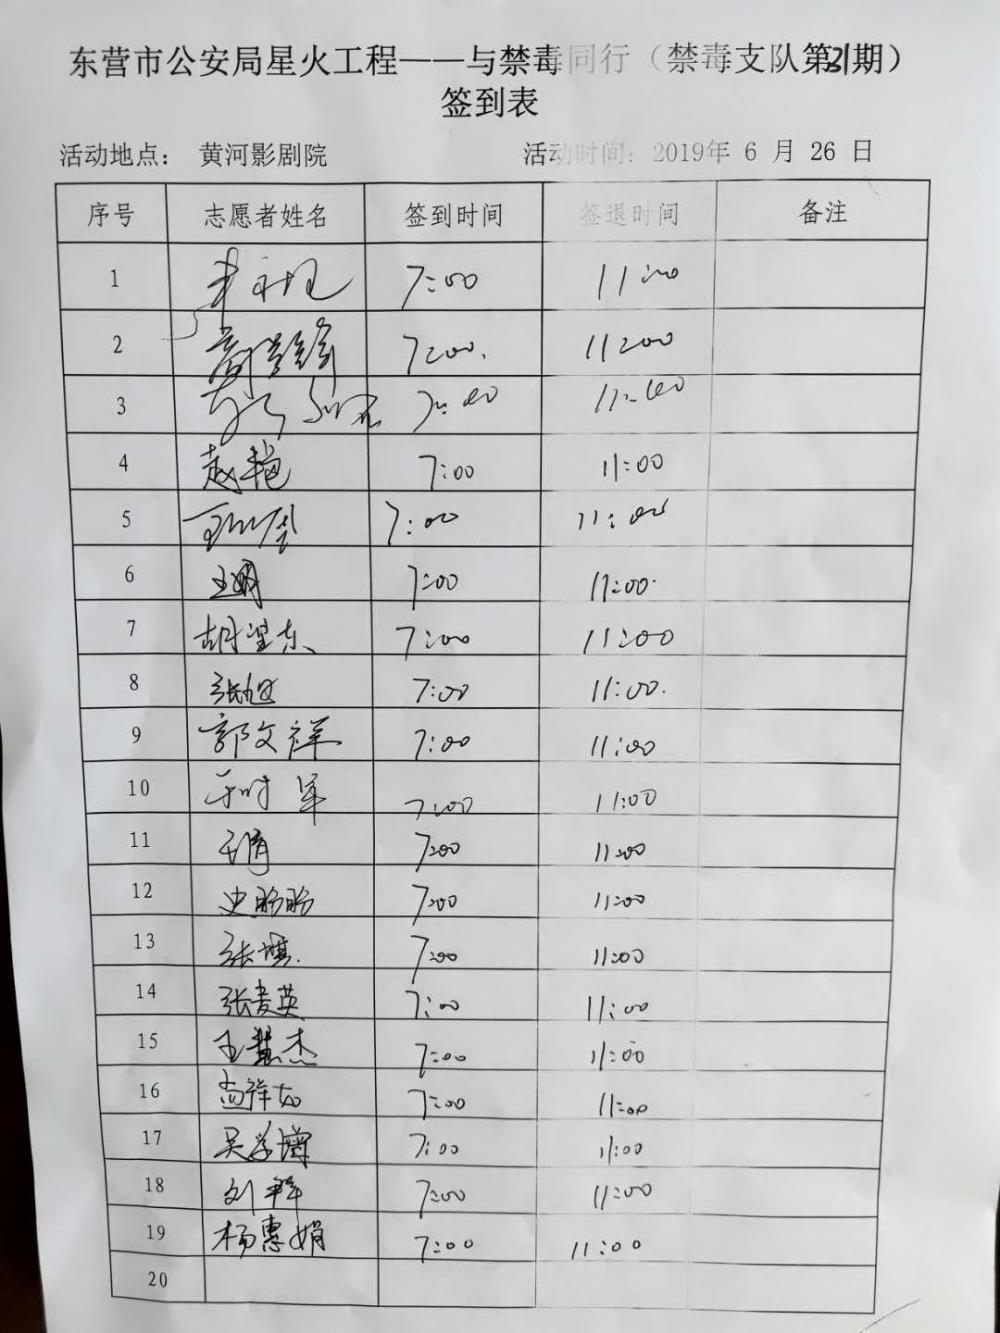 东营市公安局星火工程——与禁毒同行（禁毒支队第31期）
签到表
活动地点： 黄河影剧院 活动时间：2019年 6 月 26 日
序号 志愿者姓名 签到时间 签退时间 备注
1 7:00 11:00
2 7:00. 11:00
3 7:00 11:00
4 赵艳 7:00 11:00
5 7:00 11:00
6 王娟 7:00 11:00.
7 胡望东 7:00 11:00
8 张旭 7:00 11:00.
9 郭文祥 7:00 11:00
10 于时军 7:00 11:00
11 于倩 7:00 11:00
12 史盼盼 7:00 11:00
13 张琪. 7:00 11:00
14 张贵英 7:00 11:00
15 王慧杰 7:00 11:00
16 尚祥友 7:00 11:00
17 吴学增 7:00 11:00
18 刘群 7:00 11:00
19 杨惠娟 7:00 11:00
20